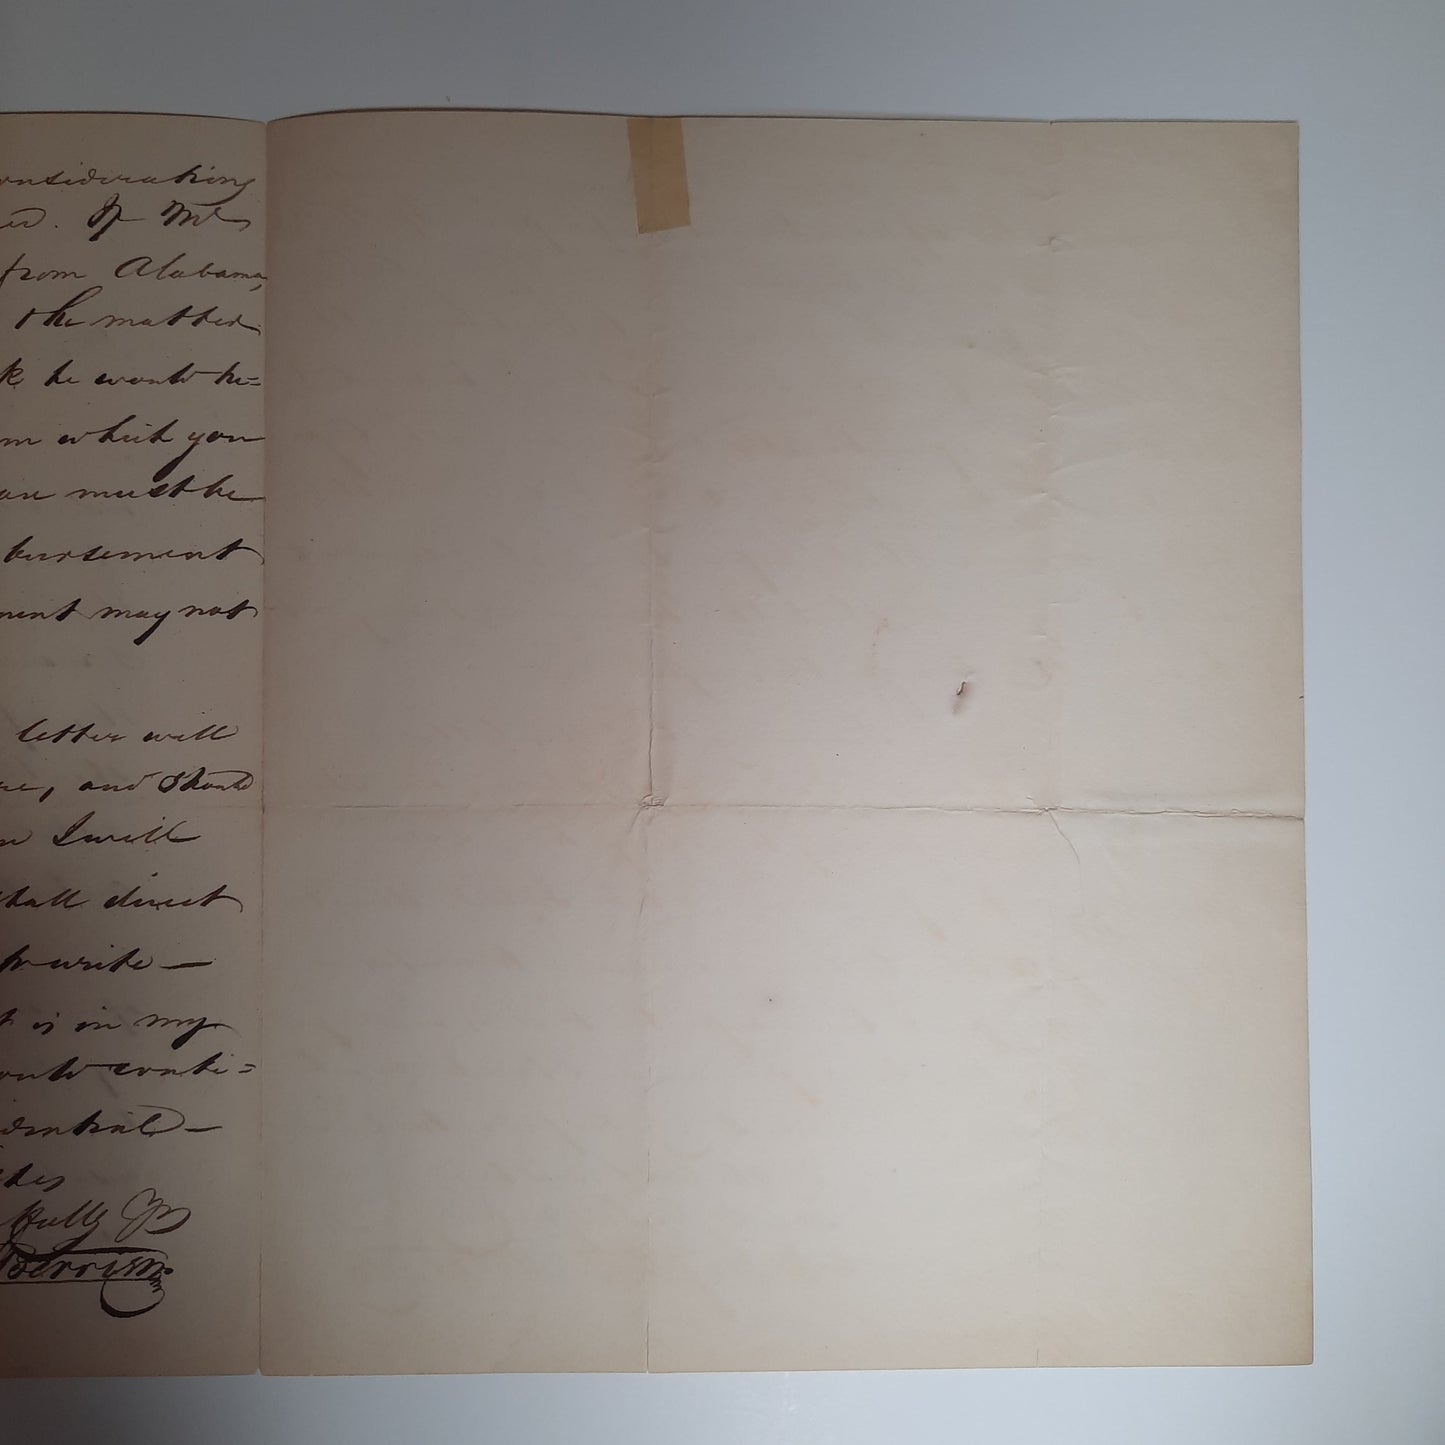 onsiderations
ed. If Mr
from Alabama,
the matter
k he would be=
m which you
an must be
bursement
ment may not
letter will
ne, and should
I will
shall direct
to write —
t is in my
ould confi=
idential —
hes
fully Yrs
Berrien